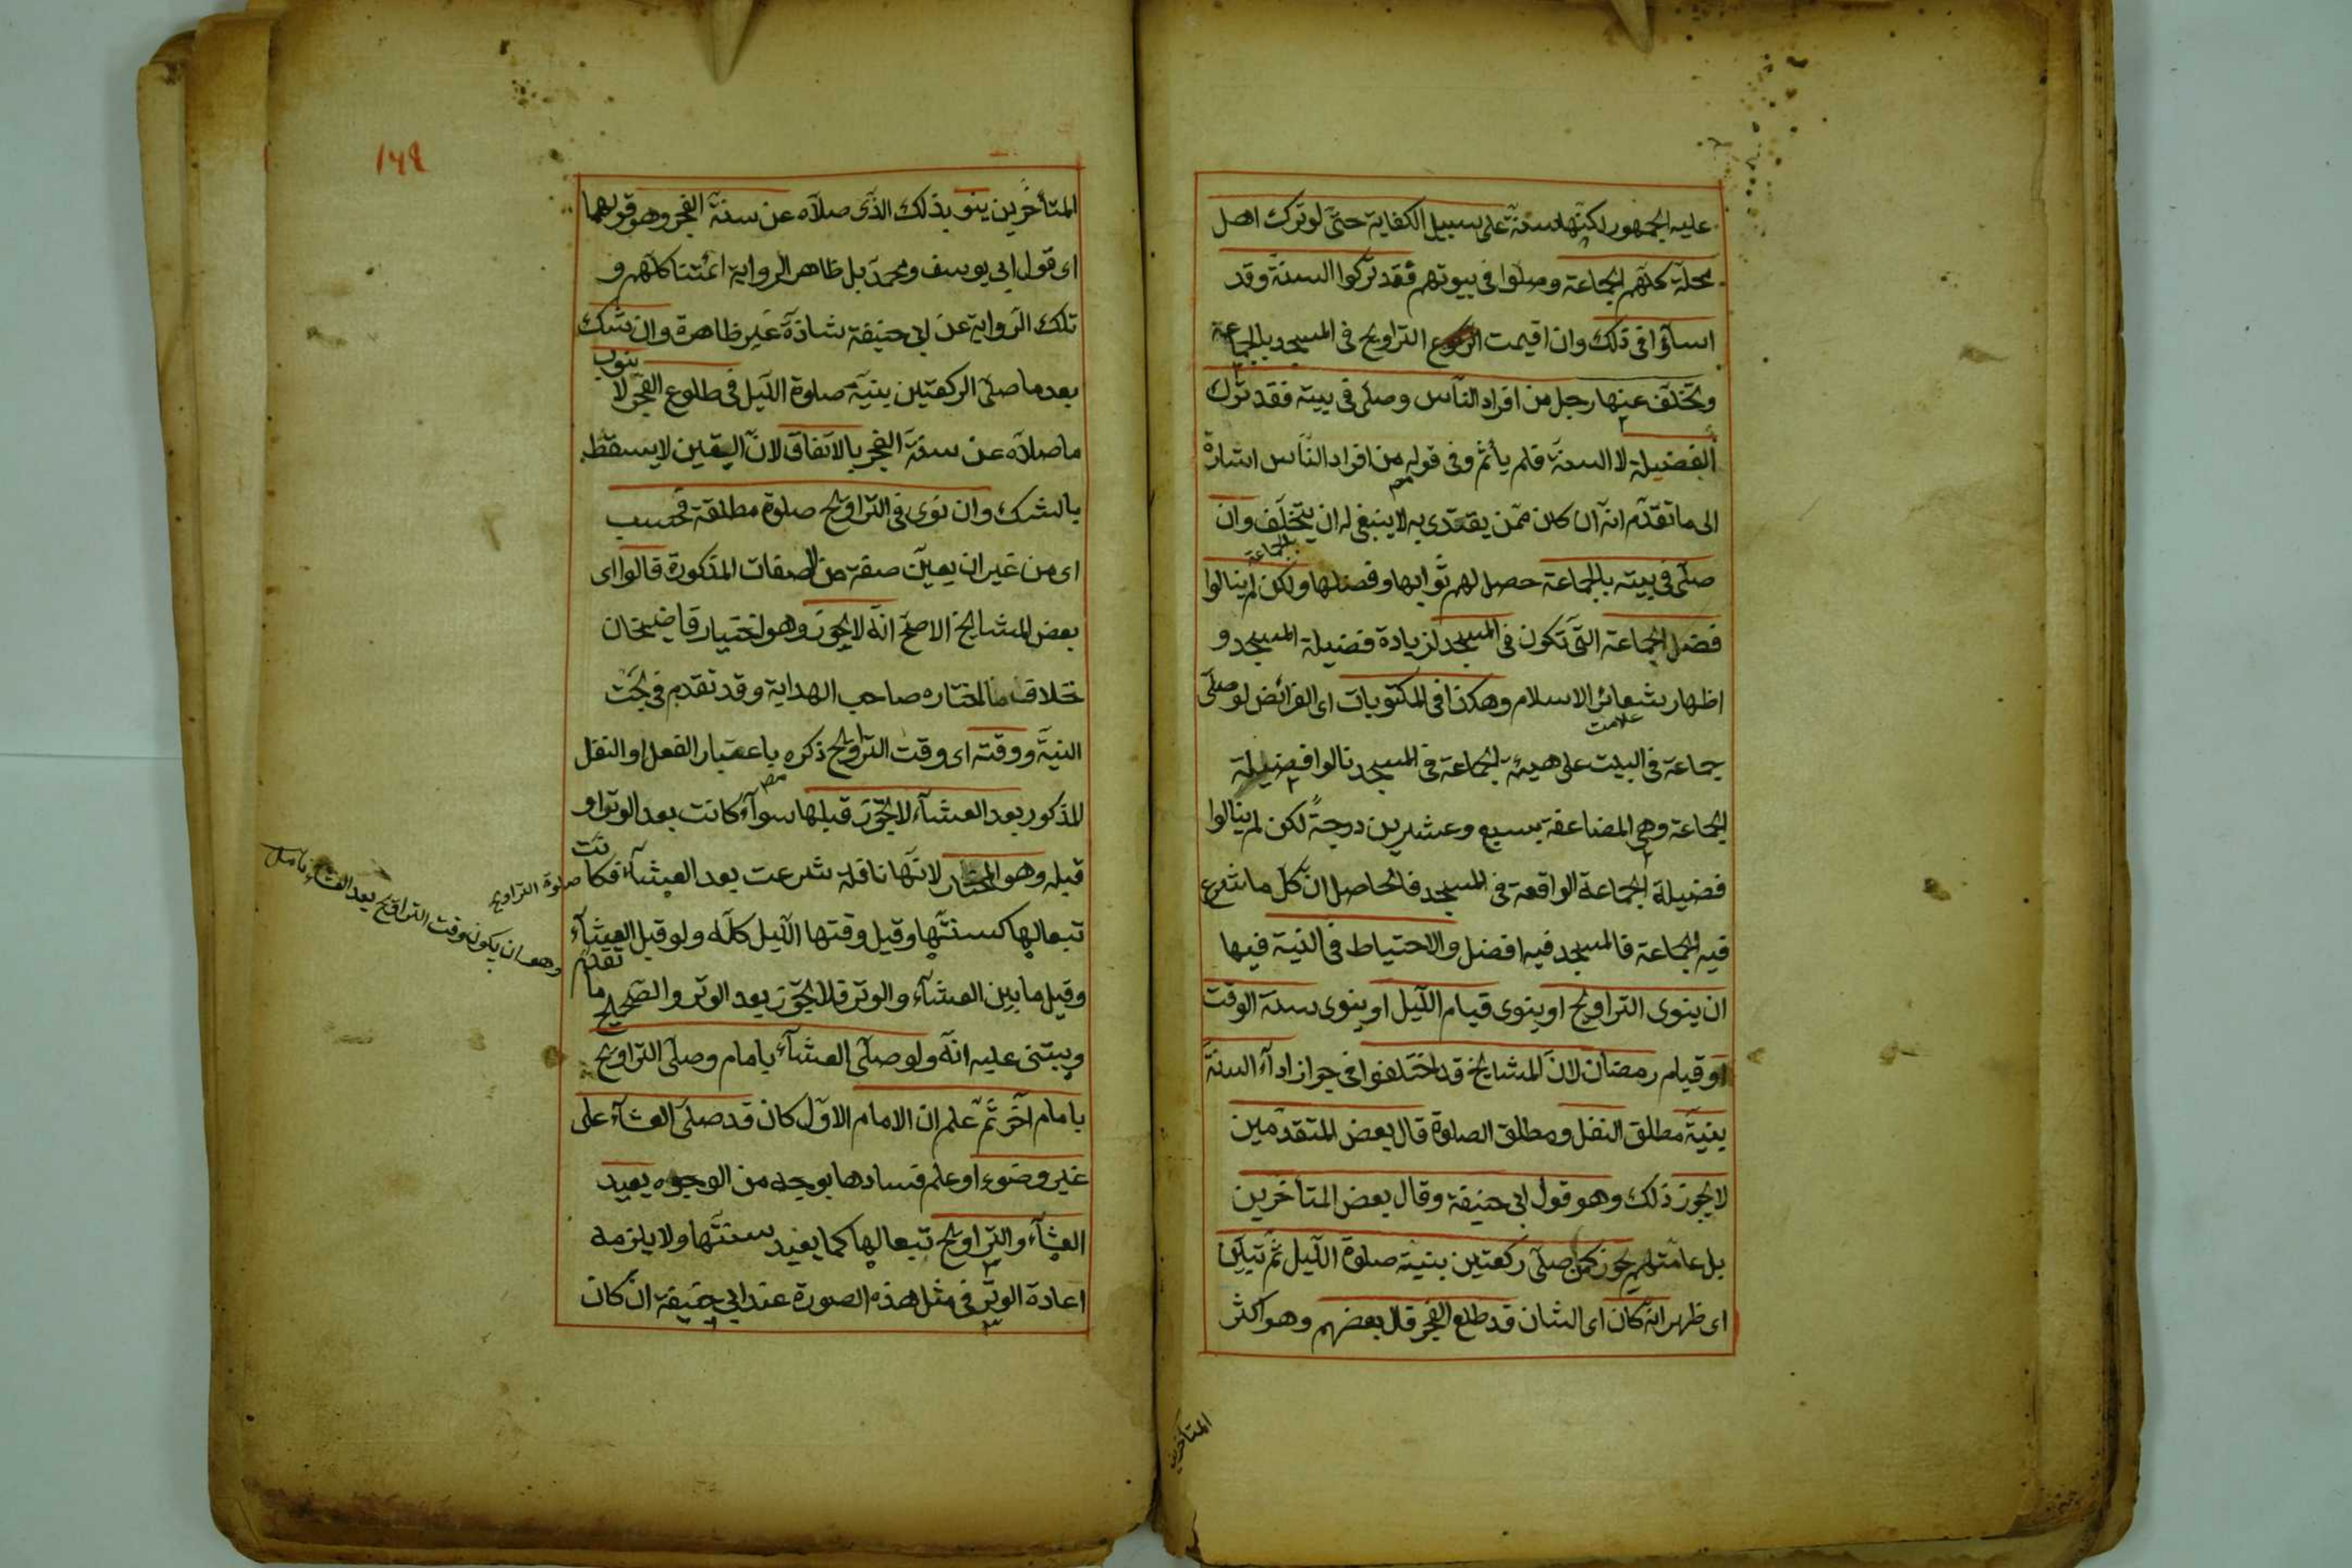 عليه الجمهور لكنها سنة على سبيل الكفاية حتى لو ترك اهل
محلة كلهم الجماعة وصلوا فى بيوتهم فقد تركوا السنة وقد
اساؤا فى ذلك وان اقيمت التراويح فى المسجد بالجماعة
وتخلف عنها رجل من افراد الناس وصلى فى بيته فقد ترك
الفضيلة لا السنة فلم يأثم وفى قوله من افراد الناس اشارة
الى ما تقدم انه ان كان ممن يقتدى به لا ينبغى له ان يتخلف وان
صلى فى بيته بالجماعة حصل لهم ثوابها وفضلها ولكن لم ينالوا
الجماعة
فضل الجماعة التى تكون فى المسجد لزيادة فضيلة المسجد و
اظهار شعائر الاسلام وهكذا فى المكتوبات اى الفرائض لو صلى
جماعة فى البيت على هيئة الجماعة فى المسجد نالوا فضيلة
الجماعة وهى المضاعفة بسبع وعشرين درجة لكن لم ينالوا
فضيلة الجماعة الواقعة فى المسجد فالحاصل ان كل ما شرع
فيه الجماعة فالمسجد فيه افضل والاحتياط فى النية فيها
ان ينوى التراويح او ينوى قيام الليل او ينوى سنة الوقت
او قيام رمضان لان المشايخ قد اختلفوا فى جواز اداء السنة
بنية مطلق النفل ومطلق الصلوة قال بعض المتقدمين
لا يجوز ذلك وهو قول ابى حنيفة وقال بعض المتأخرين
بل عامتهم يجوز كمن صلى ركعتين بنية صلوة الليل ثم تبين
اى ظهر انه كان اى الشان قد طلع الفجر قال بعضهم وهو اكثر
المتأخرين
المتأخرين ينو بذلك الذى صلاه عن سنة الفجر وهو قولهما
اى قول ابى يوسف ومحمد بل ظاهر الرواية ائمتنا كلهم و
تلك الرواية عن ابى حنيفة شاذة غير ظاهرة وان شك
بعد ما صلى الركعتين بنية صلوة الليل فى طلوع الفجر لا ينوب
ما صلاه عن سنة الفجر بالاتفاق لان اليقين لا يسقط
بالشك وان نوى فى التراويح صلوة مطلقة فحسب
اى من غير ان يعين صفة من الصفات المذكورة قالوا اى
بعض المشايخ الاصح انه لا يجوز وهو اختيار قاضيخان
خلاف ما اختاره صاحب الهداية وقد تقدم فى بحث
النية ووقته اى وقت التراويح ذكره باعتبار الفعل او النفل
المذكور بعد العشاء لا يجوز قبلها سواء كانت بعد الوتر او
قبله وهو المختار لانها نافلة شرعت بعد العشاء فكانت
تبعا لها كسنتها وقيل وقتها الليل كله ولو قبل العشاء
وقيل ما بين العشاء والوتر فلا يجوز بعد الوتر والصحيح ما تقدم
ويبتنى عليه انه ولو صلى العشاء بامام وصلى التراويح
بامام آخر ثم علم ان الامام الاول كان قد صلى العشاء على
غير وضوء او علم فسادها بوجه من الوجوه يعيد
العشاء والتراويح تبعا لها كما يعيد سنتها ولا يلزمه
اعادة الوتر فى مثل هذه الصورة عند ابى حنيفة ان كان
صلوة التراويح
وهو ان يكون وقت التراويح بعد العشاء تأمل